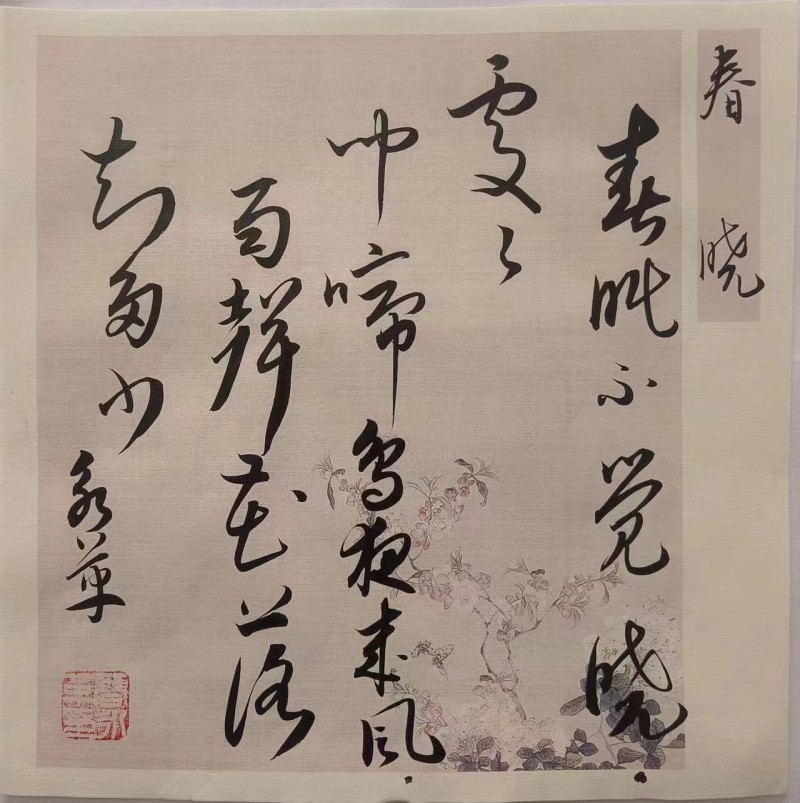 春晓
春眠不觉晓
處々
闻啼鸟夜来风
雨聲花落
知多少
永